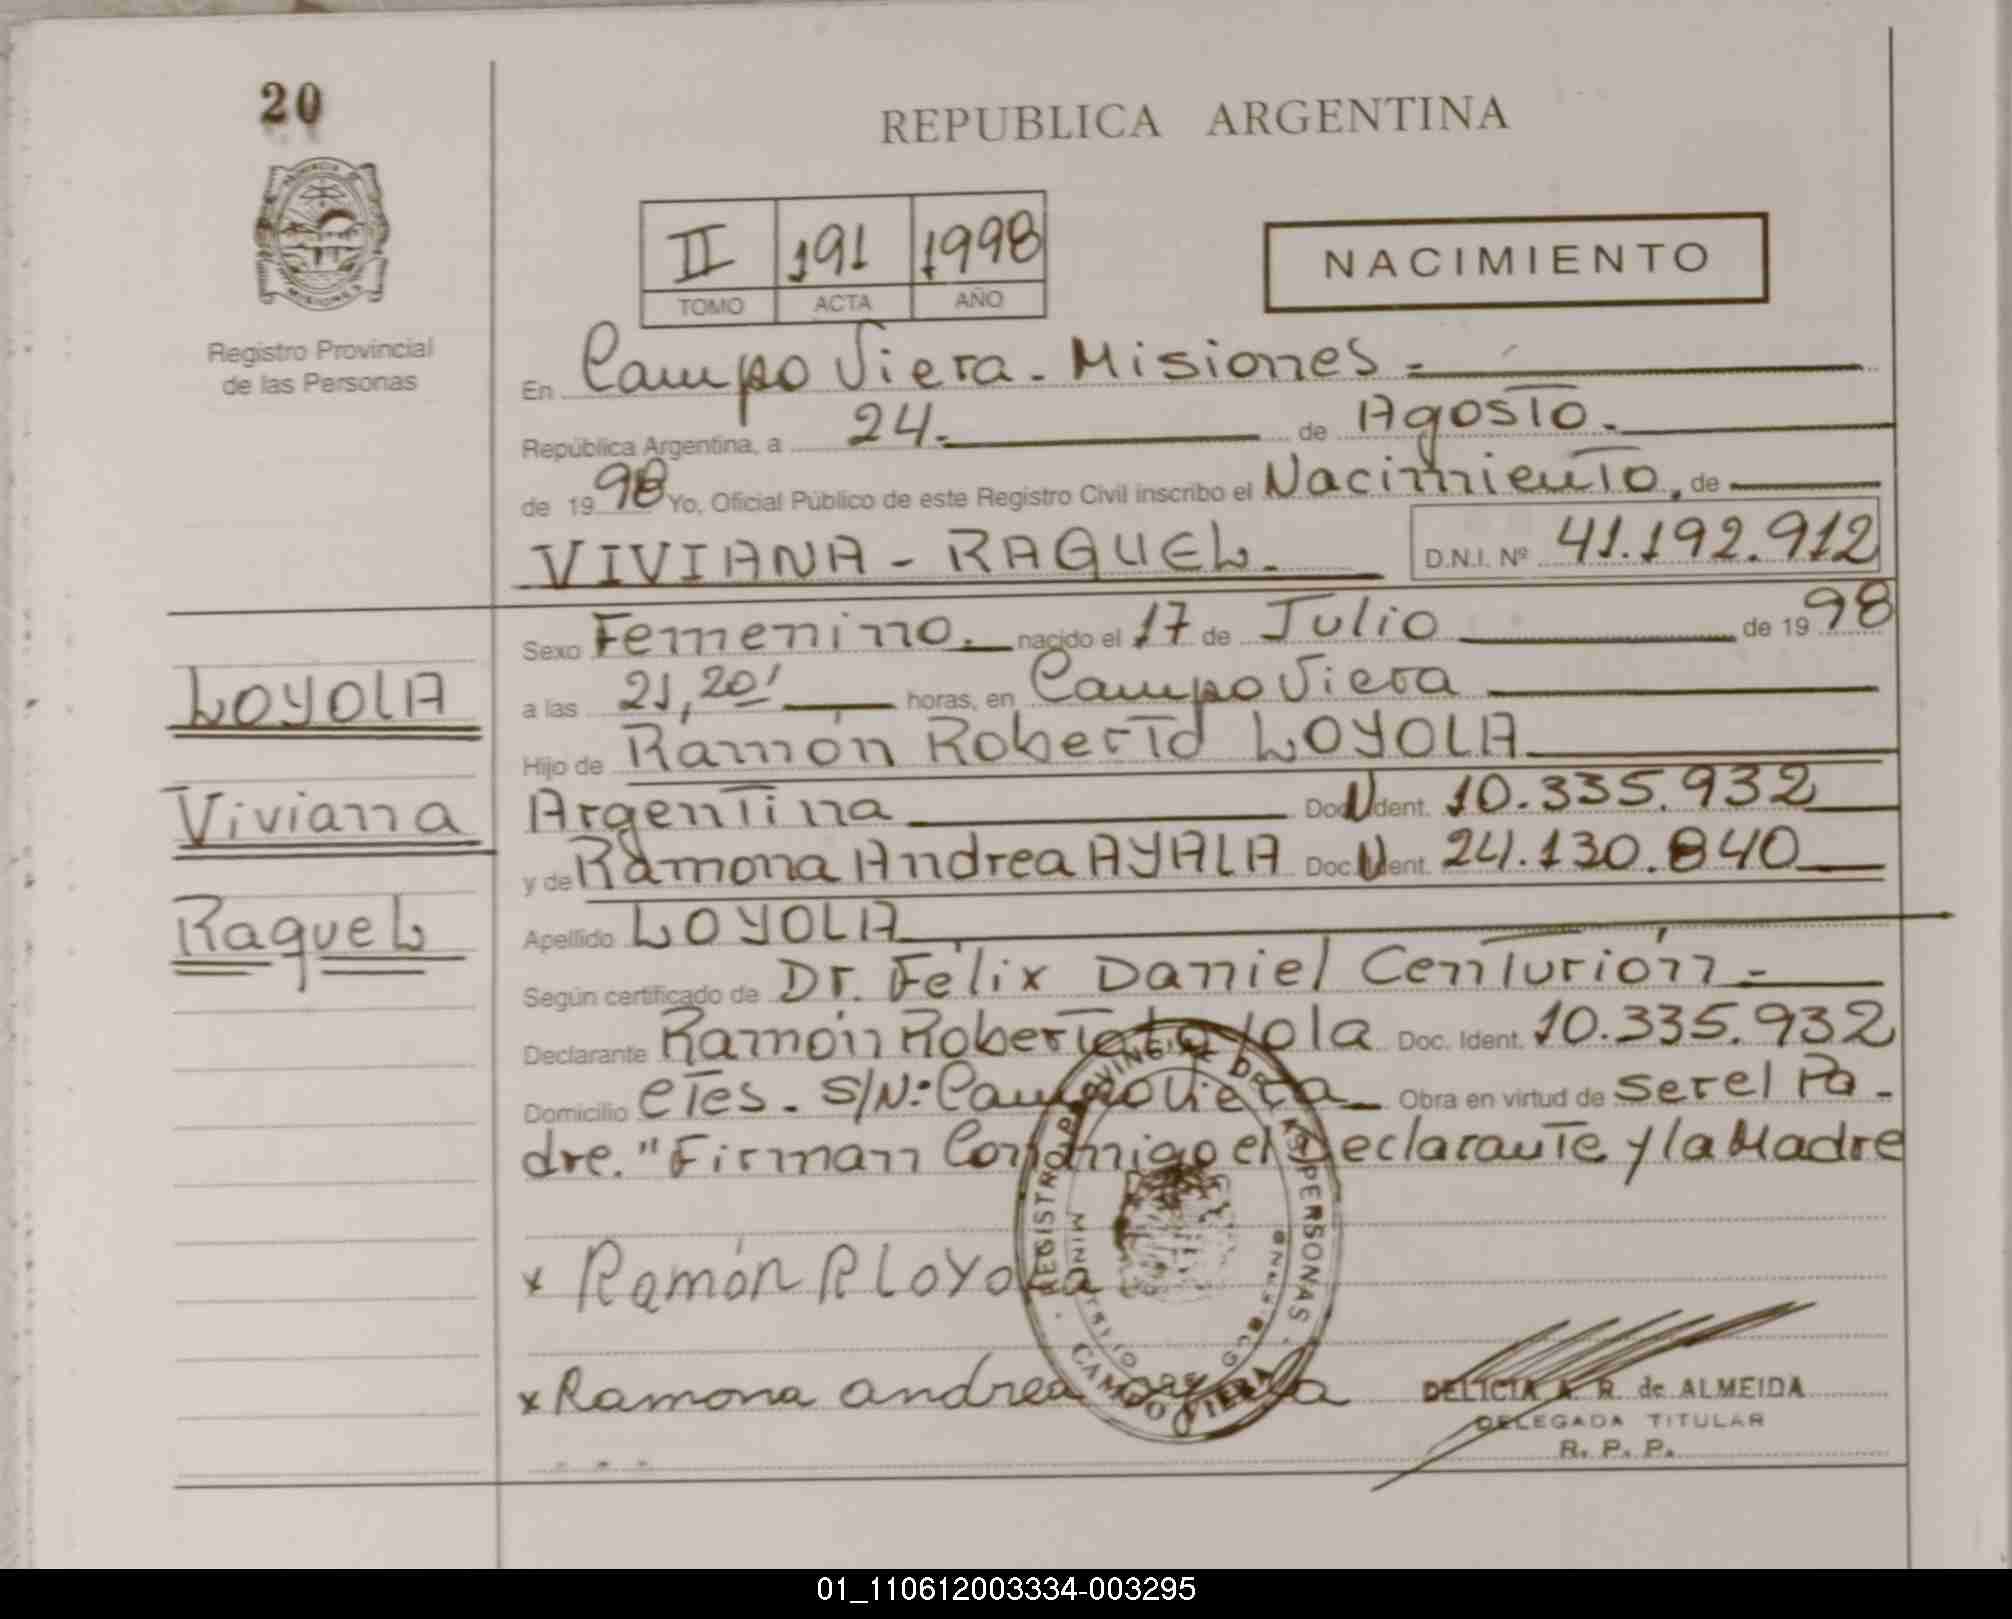 20
PROVINCIA DE
MISIONES
Registro Provincial
de las Personas
REPUBLICA ARGENTINA
II 191 1998
TOMO ACTA AÑO
NACIMIENTO
En Campo Viera - Misiones -
República Argentina, a 24. de Agosto.
de 1998 Yo, Oficial Público de este Registro Civil inscribo el Nacimiento, de
VIVIANA - RAQUEL. D.N.I. Nº 41.192.912
Sexo Femenino. nacido el 17 de Julio de 1998
a las 21,20' horas, en Campo Viera
Hijo de Ramón Roberto LOYOLA
Argentina Doc. Ident. 10.335.932
y de Ramona Andrea AYALA Doc. Ident. 24.130.840
Apellido LOYOLA
Según certificado de Dr. Félix Daniel Centurión -
Declarante Ramón Roberto Loyola Doc. Ident. 10.335.932
Domicilio etes. S/N: Campo Viera Obra en virtud de ser el Pa-
dre. "Firman Conmigo el Declarante y la Madre
LOYOLA
Viviana
Raquel
x Ramón R LOYOla
x Ramona andrea ayala
REGISTRO PROVINCIAL DE LAS PERSONAS
MINISTERIO
CAMPO VIERA
DELICIA A. R. de ALMEIDA
DELEGADA TITULAR
R. P. P.
01_110612003334-003295